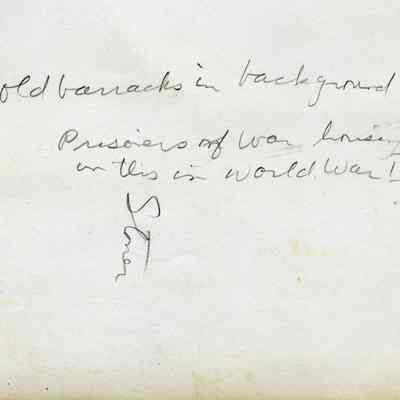 old barracks in background
Prisoners of War housing
in this in World War I
Stoner